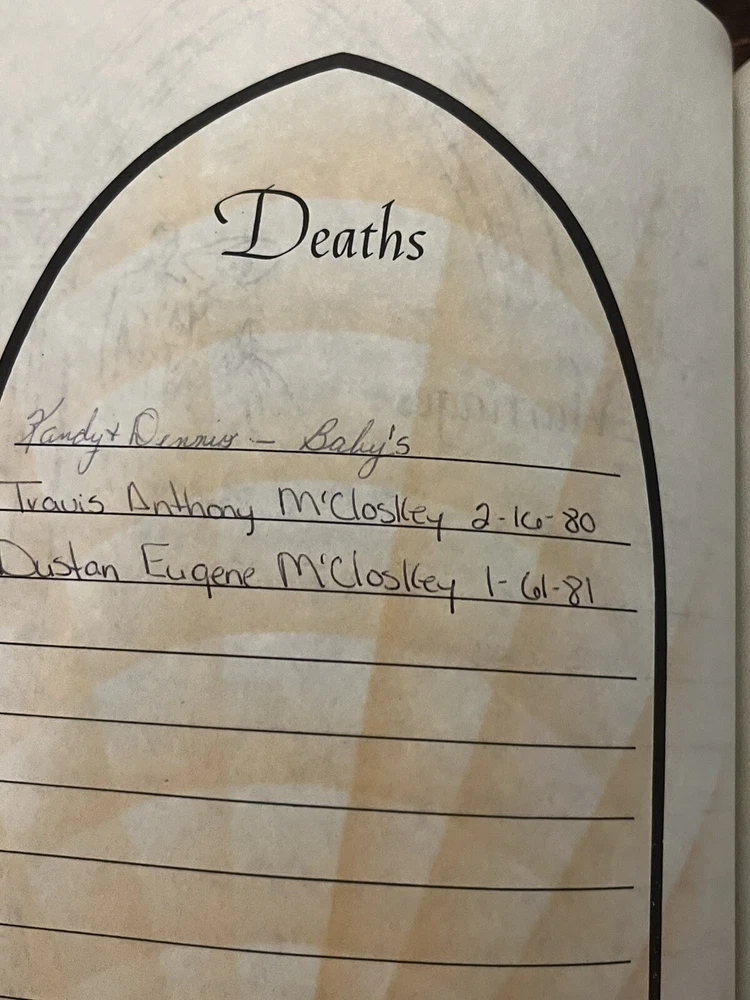 Deaths
Kandy + Dennis – Baby's
Travis Anthony McCloskey 2-16-80
Dustan Eugene McCloskey 1-61-81